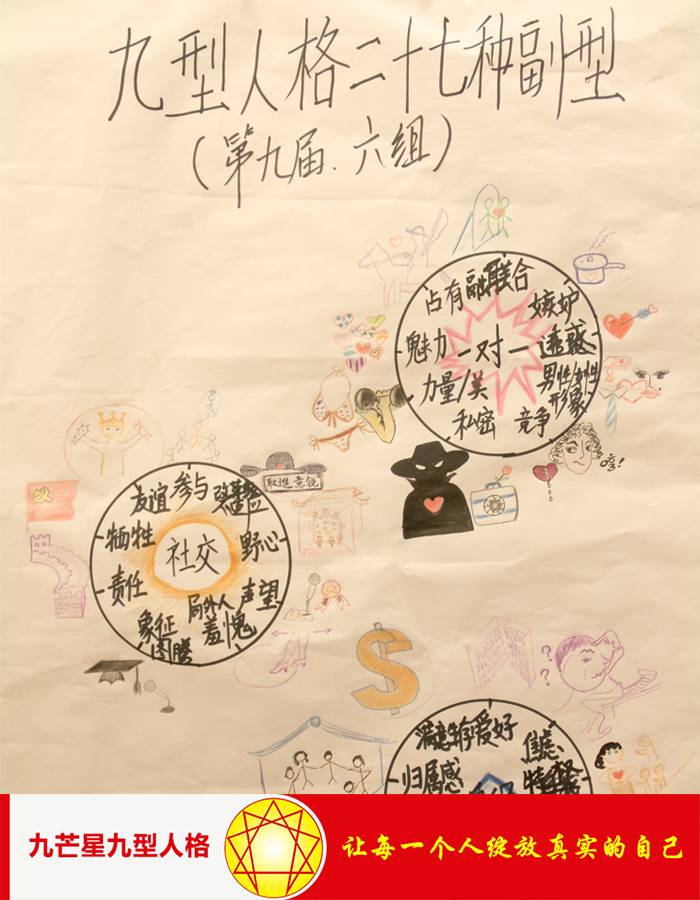 九型人格二十七种副型
(第九届.六组)
占有 融 联合
嫉妒
魅力 一对一 透惑
力量/美 男性/女性
形象
私密 竞争
哼!
友谊 参与
牺牲 野心
社交
责任 声望
局外人
象征 羞愧
图腾
取進意锐
$
??
满意生存爱好
焦虑、
归属感
九芒星九型人格 让每一个人绽放真实的自己